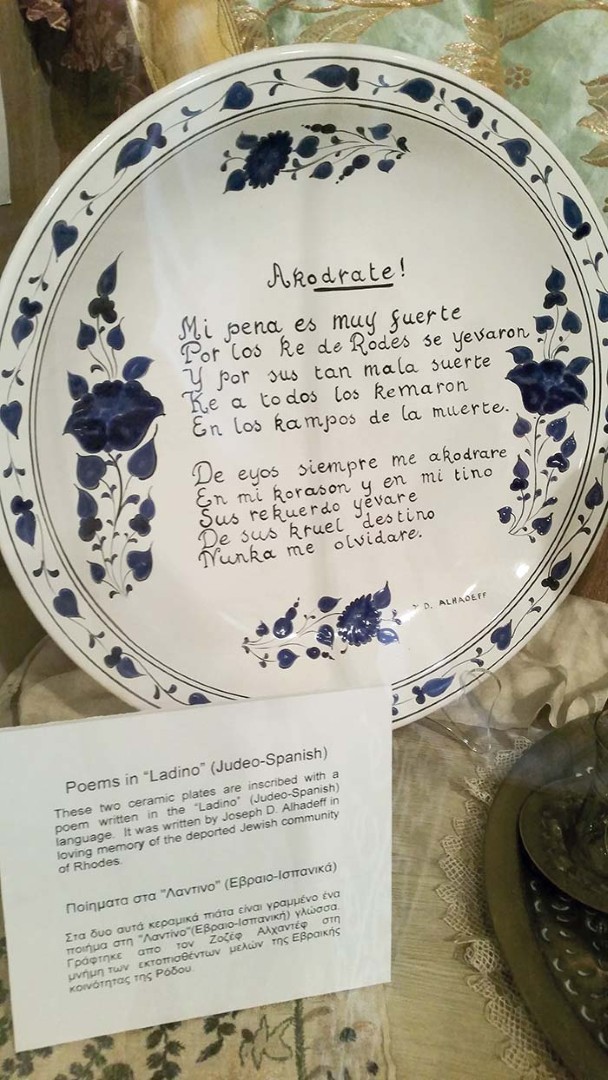 Akodrate!
Mi pena es muy fuerte
Por los ke de Rodes se yevaron
Y por sus tan mala suerte
Ke a todos los kemaron
En los kampos de la muerte.
De eyos siempre me akodrare
En mi korason y en mi tino
Sus rekuerdo yevare
De sus kruel destino
Nunka me olvidare.
D. ALHADEFF
Poems in "Ladino" (Judeo-Spanish)
These two ceramic plates are inscribed with a
poem written in the "Ladino" (Judeo-Spanish)
language. It was written by Joseph D. Alhadeff in
loving memory of the deported Jewish community
of Rhodes.
Ποίηματα στα "Λαντινο" (Εβραιο-Ισπανικά)
Στα δυο αυτά κεραμικά πιάτα είναι γραμμένο ένα
ποιήμα στη "Λαντίνο"(Εβραιο-Ισπανική) γλώσσα.
Γράφτηκε απο τον Ζοζέφ Αλχαντέφ στη
μνήμη των εκτοπισθέντων μελών της Εβραικής
κοινότητας της Ρόδου.